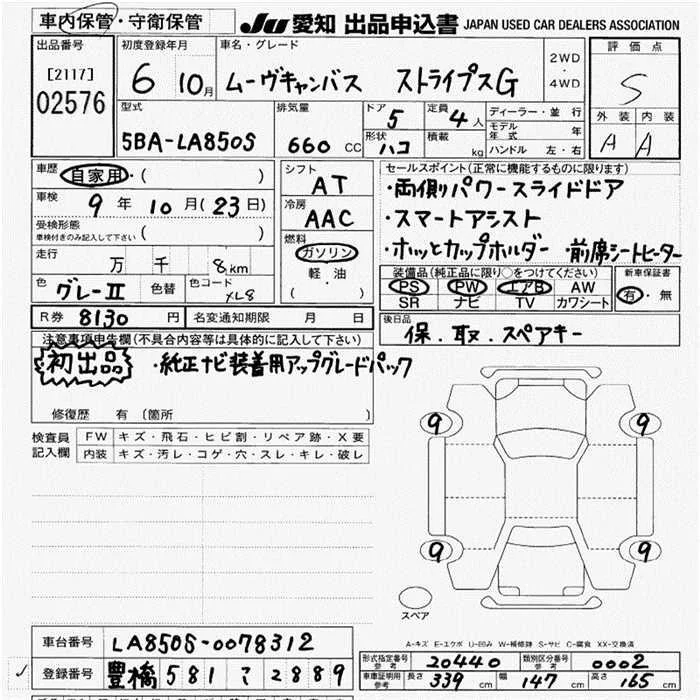 車内保管・守衛保管 JU 愛知 出品申込書 JAPAN USED CAR DEALERS ASSOCIATION
出品番号 初度登録年月 車名・グレード 評価点
[2117] 02576 6 10月 ムーヴキャンバス ストライプスG 2WD・4WD S
型式 排気量 ドア 5 定員 4人 ディーラー・並行 外装 内装
5BA-LA850S 660 CC 形状 ハコ 積載 kg モデル年式 年 A A
ハンドル 左・右
車歴 自家用・( )
車検 9年 10月(23日)
受検形態 ( )
車検付きのみ記入して下さい
走行 万 千 8km
色 グレーII 色替 色コード XL8
シフト AT
冷房 AAC
燃料 ガソリン
軽・油
( )
セールスポイント(正常に機能するものに限ります)
・両側パワースライドドア
・スマートアシスト
・ホッとカップホルダー ・前席シートヒーター
装備品(純正品に限り○をつけてください) 新車保証書
PS PW エアB AW 有・無
SR ナビ TV カワシート
R券 8130円 名変通知期限 月 日
後日品 保.取.スペアキー
注意事項申告欄(不具合内容等は具体的に記入して下さい)
初出品 ・純正ナビ装着用アップグレードパック
修復歴 有 (箇所 )
検査員記入欄 FW キズ・飛石・ヒビ割・リペア跡・X要
内装 キズ・汚レ・コゲ・穴・スレ・キレ・破レ
9 9
9 9
スペア
A-キズ E-エクボ U-凹み W-補修跡 S-サビ C-腐食 XX-交換済
車台番号 LA850S-0078312
登録番号 豊橋 581 こ 2889
形式指定番号 参考 20440 類別区分番号 参考 0002
車庫証明用 参考 長さ 339cm 幅 147cm 高さ 165cm